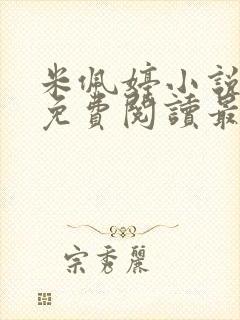 米佩婷小說
免費閱讀最
宗秀麗